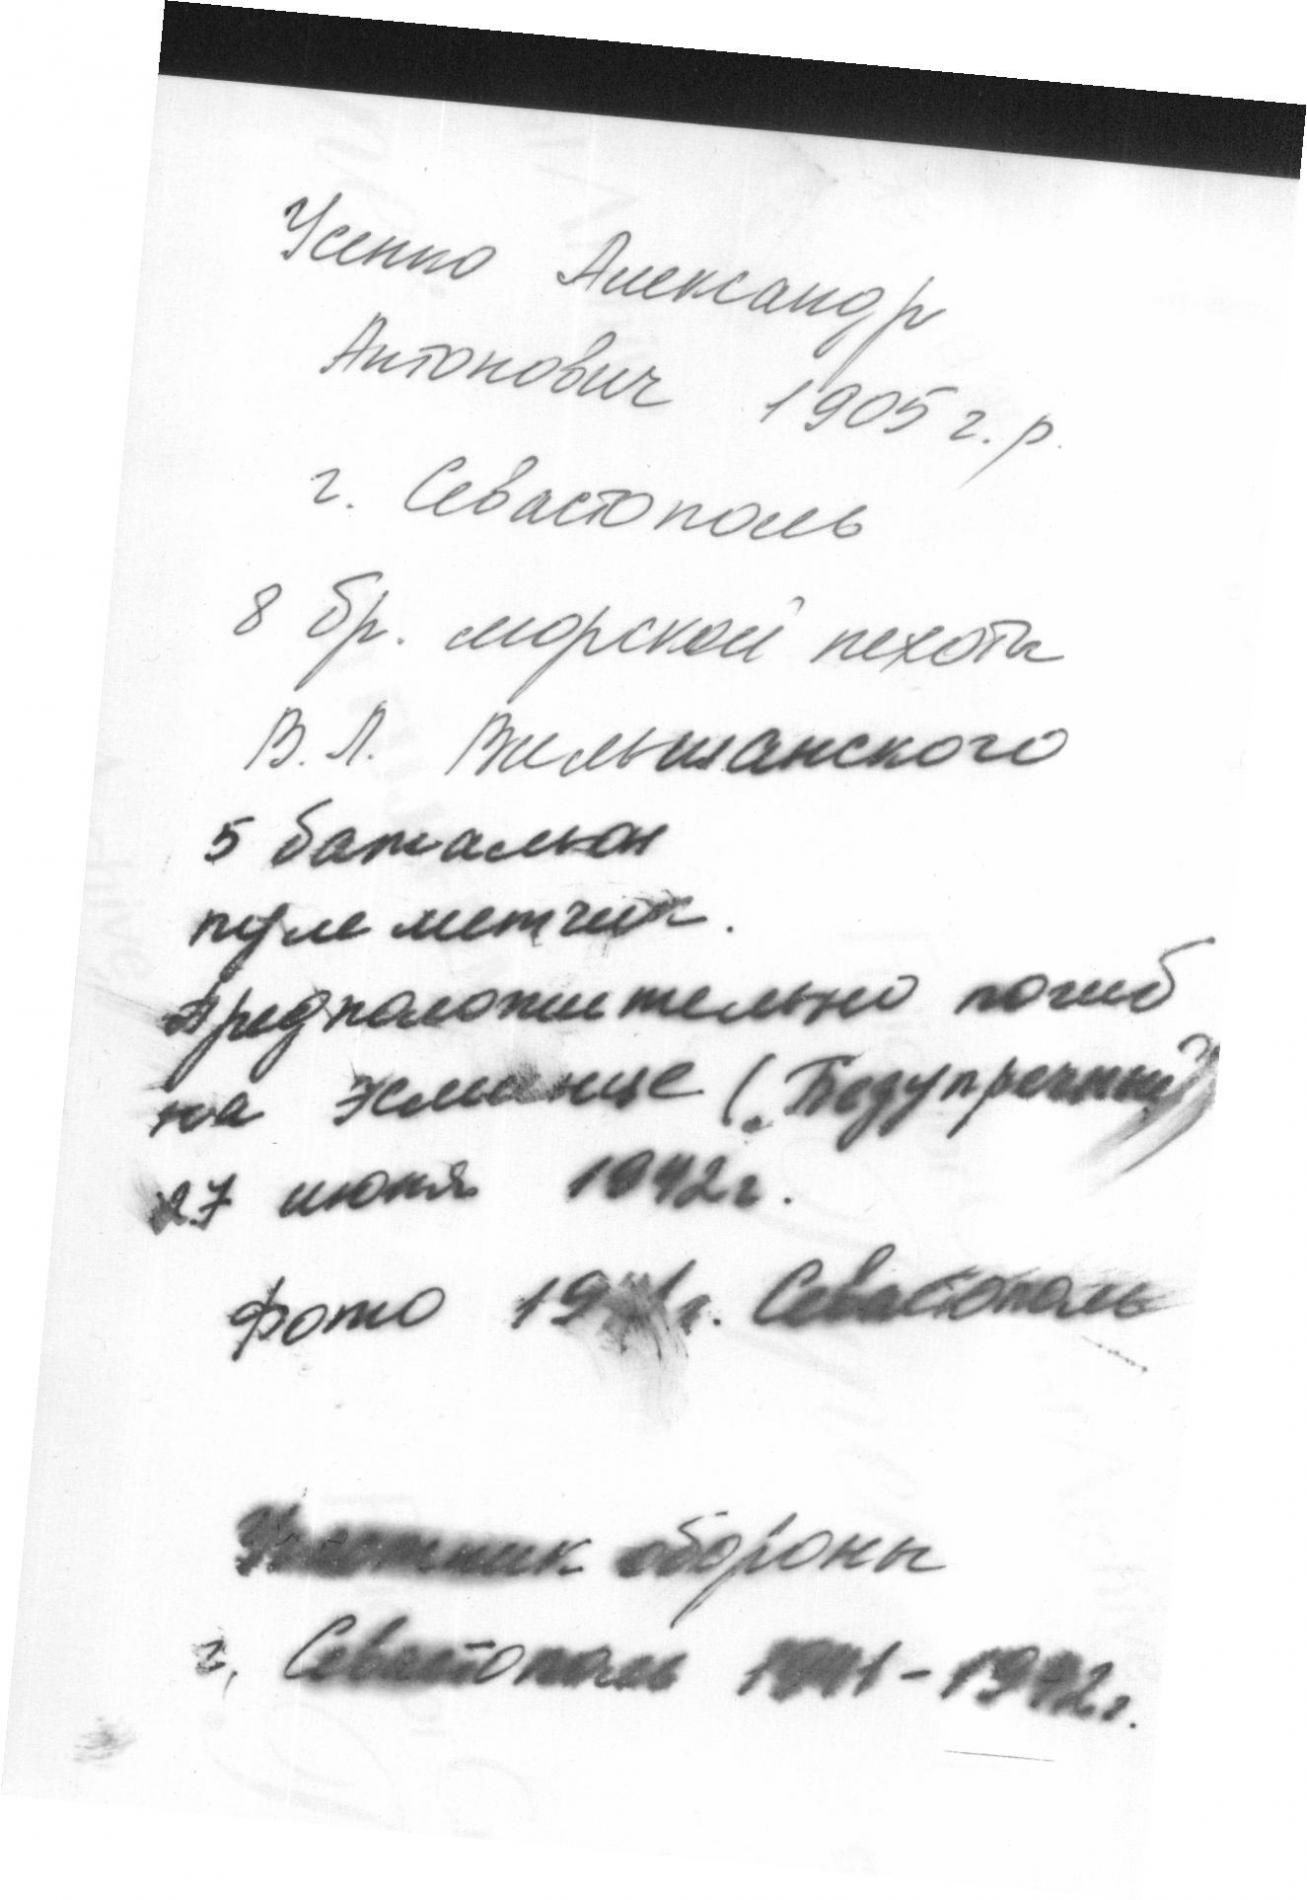 Усенко Александр
Антонович 1905 г. р.
г. Севастополь
8 бр. морской пехоты
В. Л. Вильшанского
5 батальон
пулеметчик.
Предположительно погиб
на эсминце („Безупречный")
27 июня 1942г.
Фото 1941г. Севастополь
Участник обороны
г. Севастополь 1941-1942г.